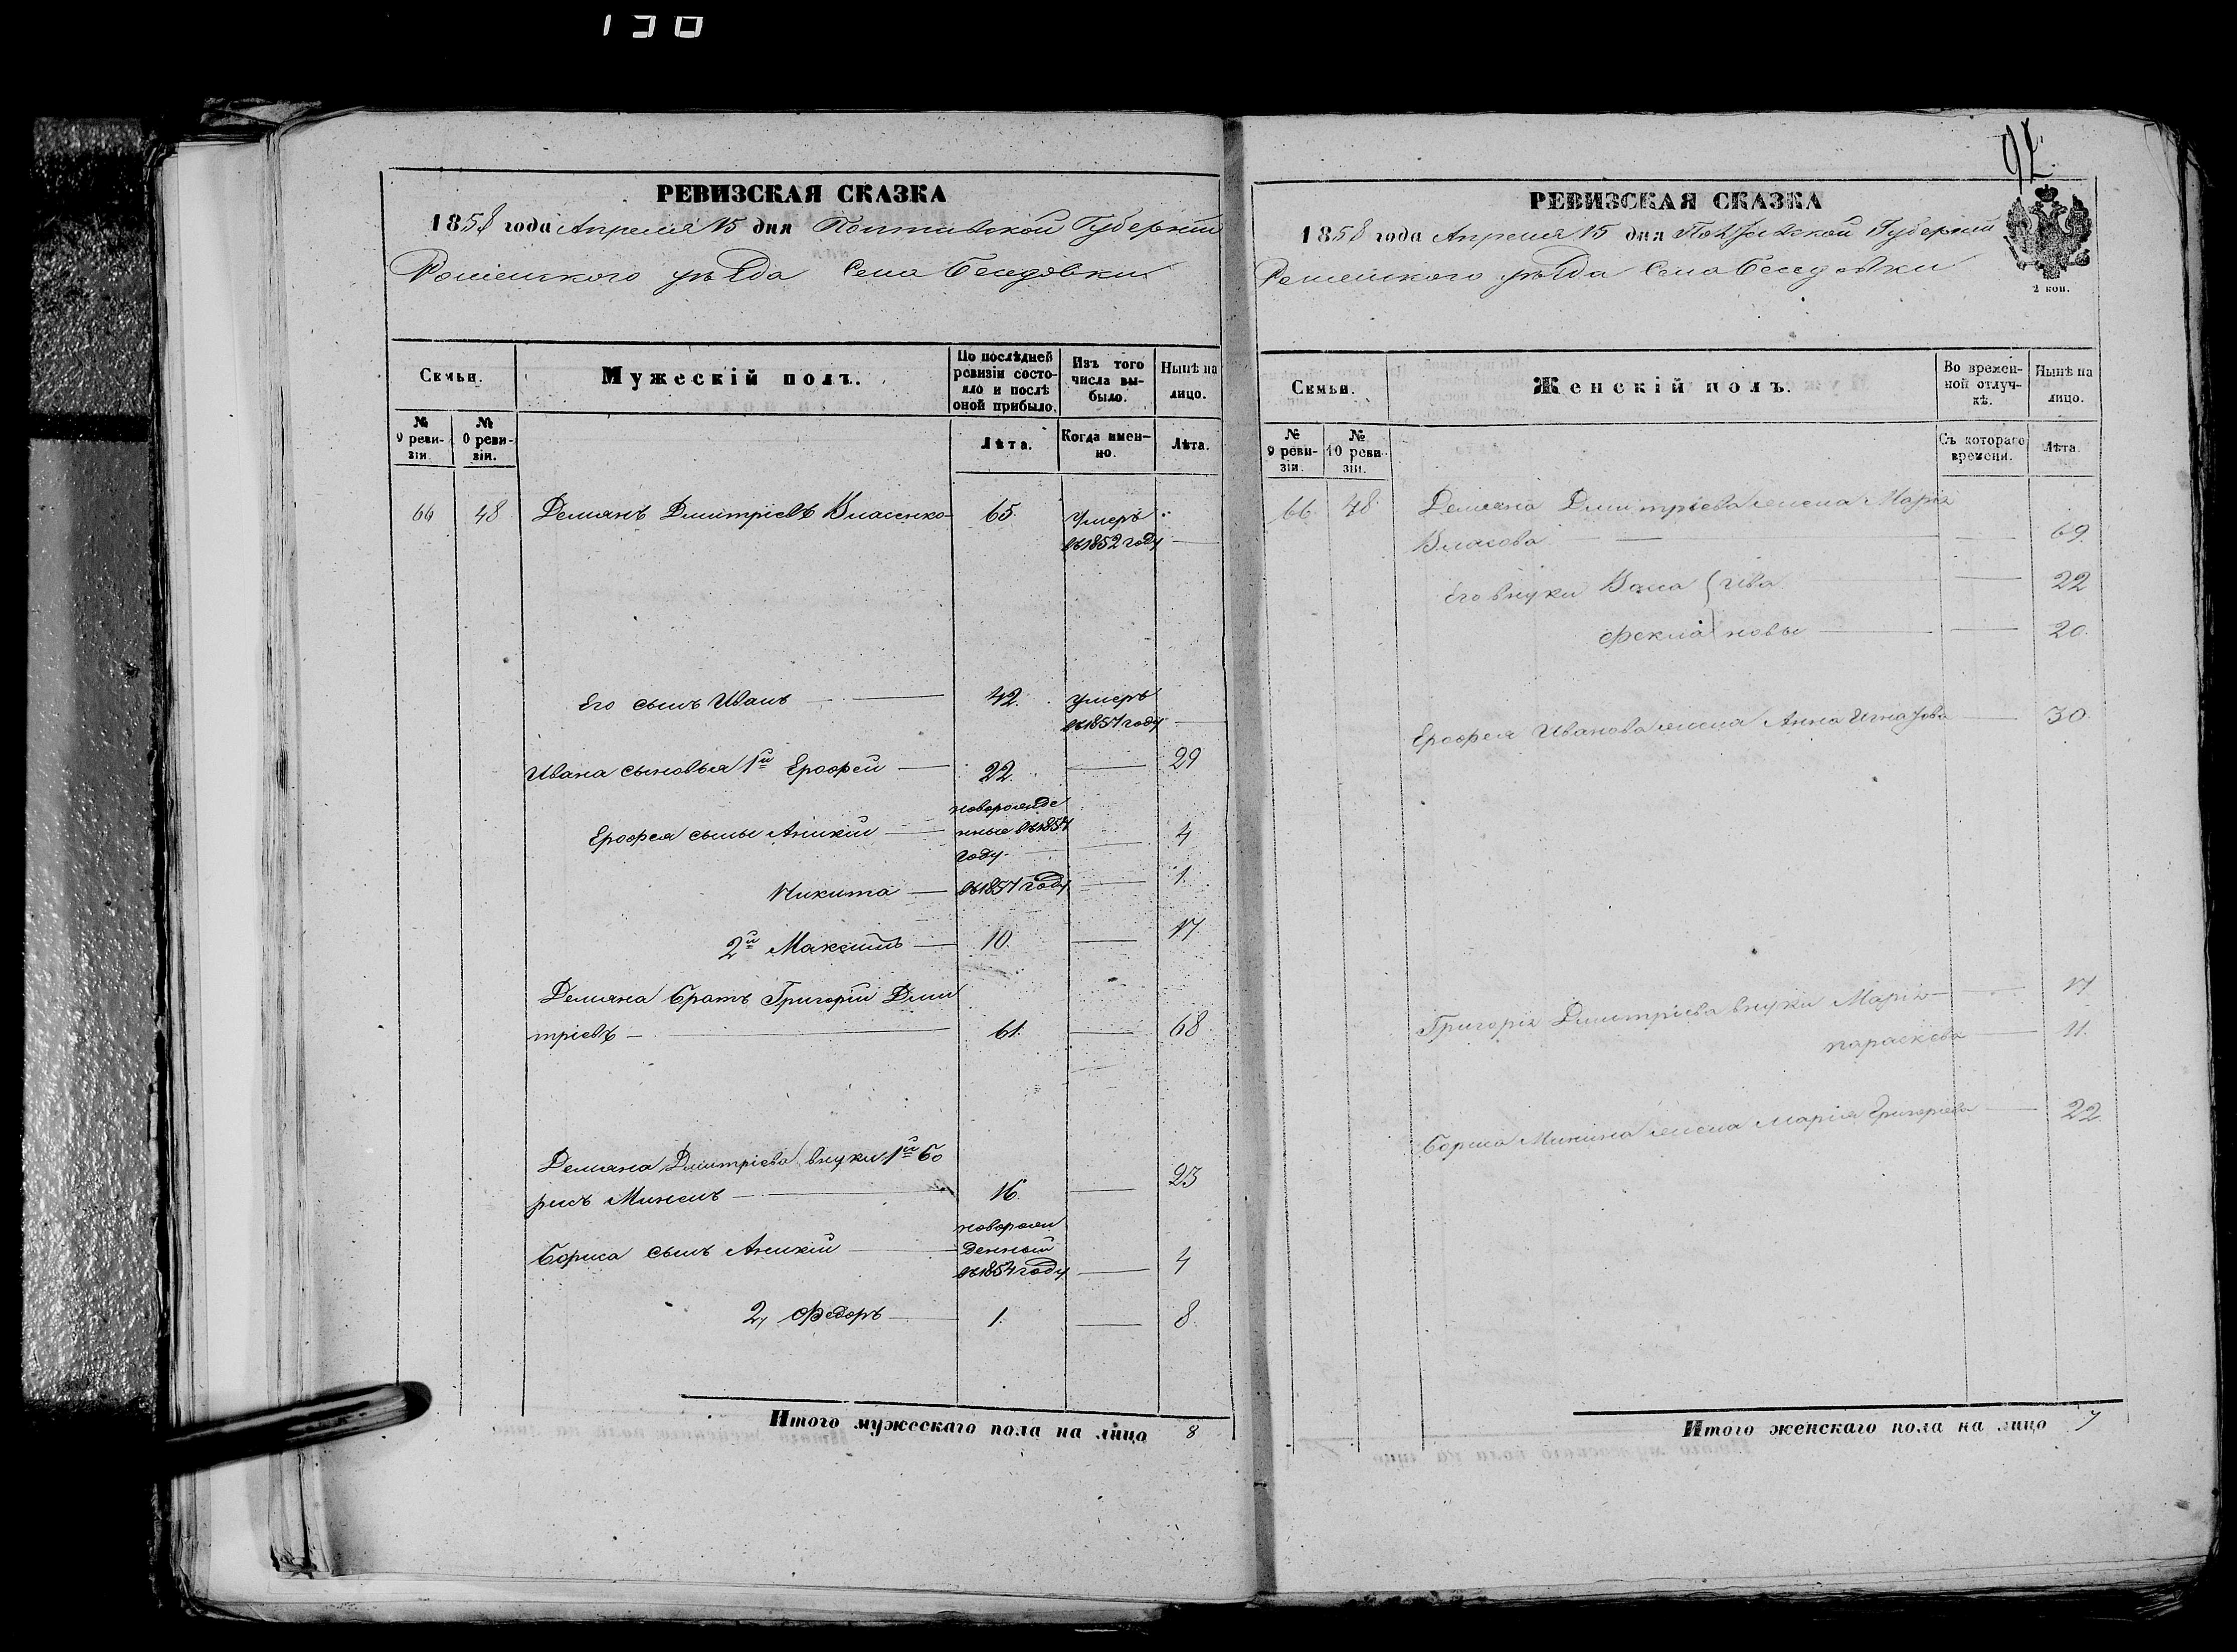 130
РЕВИЗСКАЯ СКАЗКА
1858 года Апреля 15 дня Полтавской Губерніи
Роменского уѣзда Села Беседовки
Семьи.
Мужескій полъ.
По послѣдней ревизіи состояло и послѣ оной прибыло.
Изъ того числа выбыло.
Нынѣ на лицо.
№ 9 ревизіи.
№ 0 ревизіи.
Лѣта.
Когда именно.
Лѣта.
66 48 Демянъ Дмитріевъ Власенко 65. Умеръ
въ 1852 году
Его сынъ Иванъ 42. умеръ
въ 1857 году
Ивана сыновья 1й Ерофей 22. 29
новорожде
Ерофея сыны Аникій нные въ 1854 4
году
Никита въ 1857 году 1.
2й Максимъ 10. 17
Демяна братъ Григорій Дми
тріевъ 61. 68
Демяна Дмитріева внуки 1й Бо
рисъ Мининъ 16. 23
новорож
Бориса сынъ Аникій денный
въ 1854 году 4
2, Федоръ 1. 8.
Итого мужескаго пола на лицо 8
РЕВИЗСКАЯ СКАЗКА
1858 года Апреля 15 дня Полтавской Губерніи
Роменского уѣзда Села Беседовки
2 коп.
Семьи.
Женскій полъ.
Во временной отлучкѣ.
Нынѣ на лицо.
№ 9 ревизіи.
№ 10 ревизіи.
Съ котораго времени.
Лѣта.
66. 48. Демяна Дмитріева жена Марія
Власова 69.
Его внуки Васа { Ива 22
Фекла } новы 20.
Ерофея Иванова жена Анна Игнатова 30.
Григорія Дмитріева внуки Марія 17
параскева 11.
Бориса Минина жена Марія Григорьева 22.
Итого женскаго пола на лицо 7